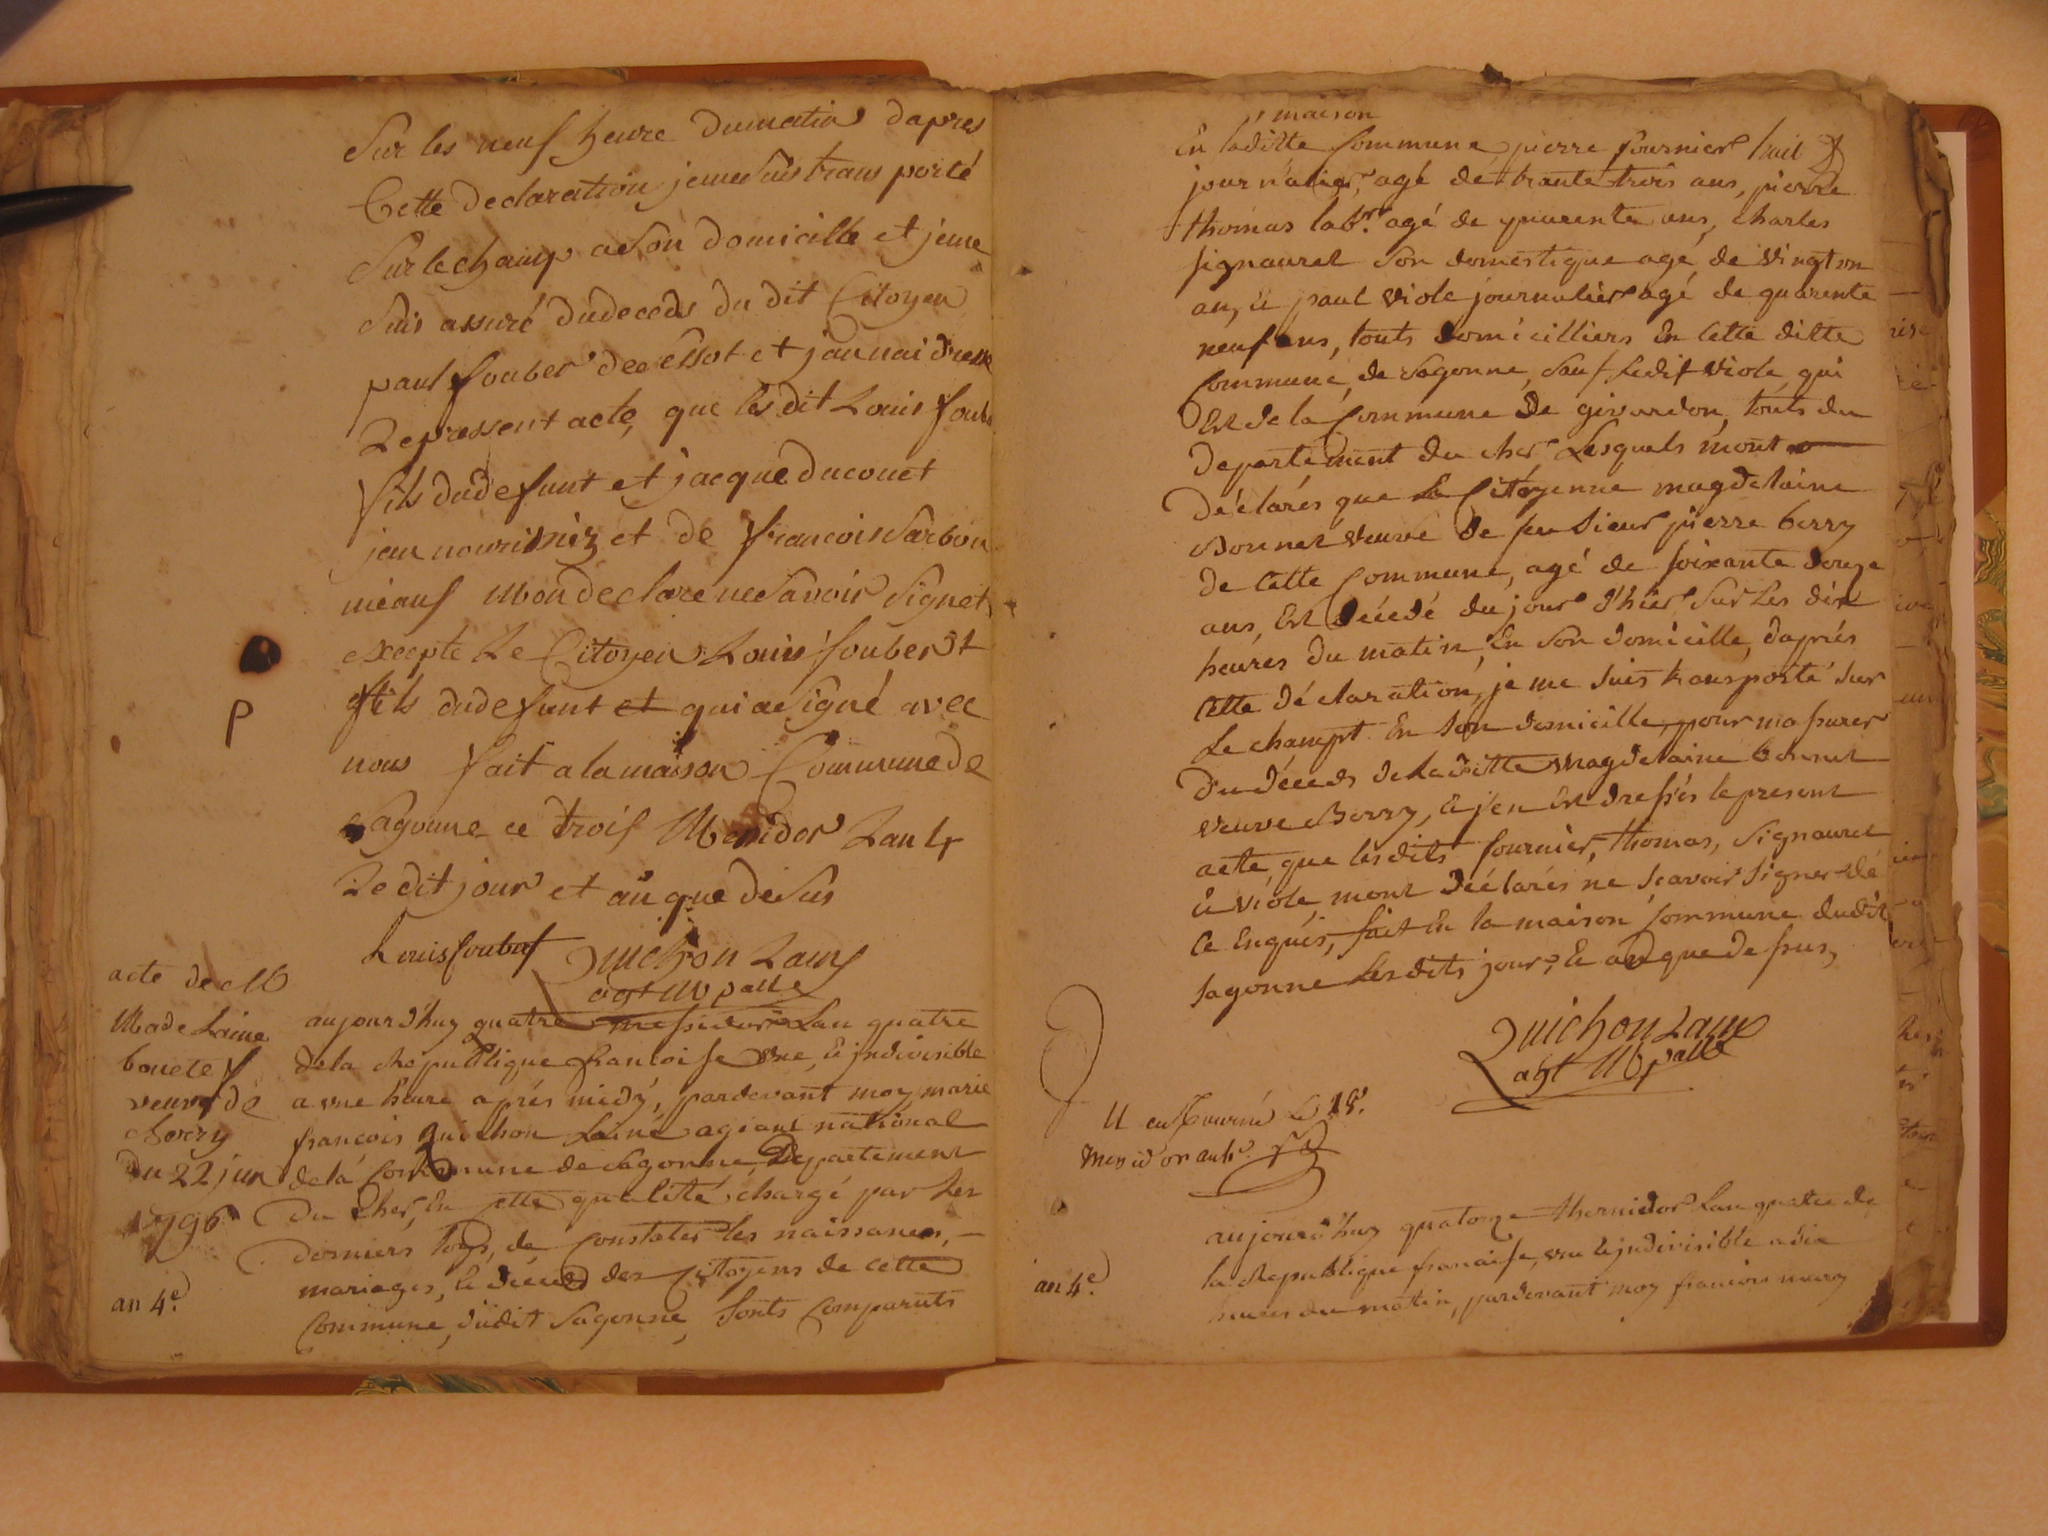 Sur les neuf heure dumatin dapres
Cette declaration jemesuis trans porté
Sur le champ a Son domicille et jeme
Suis assuré dudeceds du dit Citoyen
paul fouber deesssot et jannai dresse
Le pressent acte, que les dit Louis foub
fils dudefunt et jacque ducouet
jan nourisniez et de francois Sarbon
niéauf Mon declare nesavoir Signet
excepte Le Citoyen Louis foubert
ffils dudefunt et qui a Signé avec
P
nous fait a la maison Commune de
Sagonne ce trois Mesidor Lan 4
Ledit jour et an que desus
Louis foubert
Quichon Laine
agt Mpalle
acte de M
Madelaine
bonete
veuve de
Berry
Du 22 juin
1796
an 4e.
aujourd'huy quatre messidor Lan quatre
dela République francoise une, & jndivisible
a une heure aprés midÿ, pardevant moy marie
francois Quichon Lainé agiant national
dela Commune de Sagonne, Département
du Cher, En cette qualité chargé par les
derniers loys, de Constater les naissances,
mariages, & décceds des Citoyens de cette
Commune, dudit Sagonne, Sonts Comparuts
maison
En laditte Commune pierre fournier huil
journalier, agé de trante trois ans, pierre
thomas labr. agé de quarente ans, charles
signauret Son domestique agé de Vingt on
an, & paul Viole journalier agé de quarente
neuf ans, touts domicilliers En Cette ditte
Commune de Sagonne, Sauf Ledit Viole qui
Est de la Commune De givardon, touts du
departement du cher Lesquels m'ont
Déclarés que La Citoyenne magdelaine
Bonnet veuve De feu Sieur pierre berry
de Cette Commune, agé de soixante douze
ans, Est Décedé du jour d'hier Sur Les dix
heures du matin, En Son domicille, daprés
Cette déclaration, je me suis transporté sur
Le champt En Son domicille, pour massurer
Du déceds de laditte Magdelaine bonnet
veuve Berry, & j'en Est dressés le present
acte, que lesdits fournier, thomas, Signauret
& Viole mont Déclarés ne scavoir signer dé
Ce Enquis, fait En la maison Commune dudit
Sagonne Lesdits jour, & an que dessus,
Quichon Laine
agt Mpalle
Mesidor an 4e.
an 4e.
aujourd'huy quatorze thermidor Lan quatre de
la République francaise, une & jndivisible a dix
heures du matin, pardevant moy francois